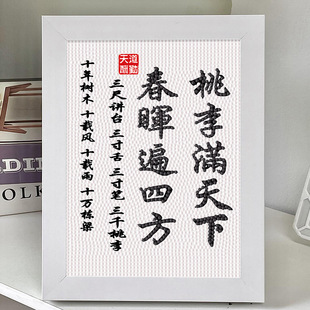 桃李滿天下
春暉遍四方
天道酬勤
三尺讲台 三寸舌 三寸笔 三千桃李
十年树木 十载风 十载雨 十万栋梁